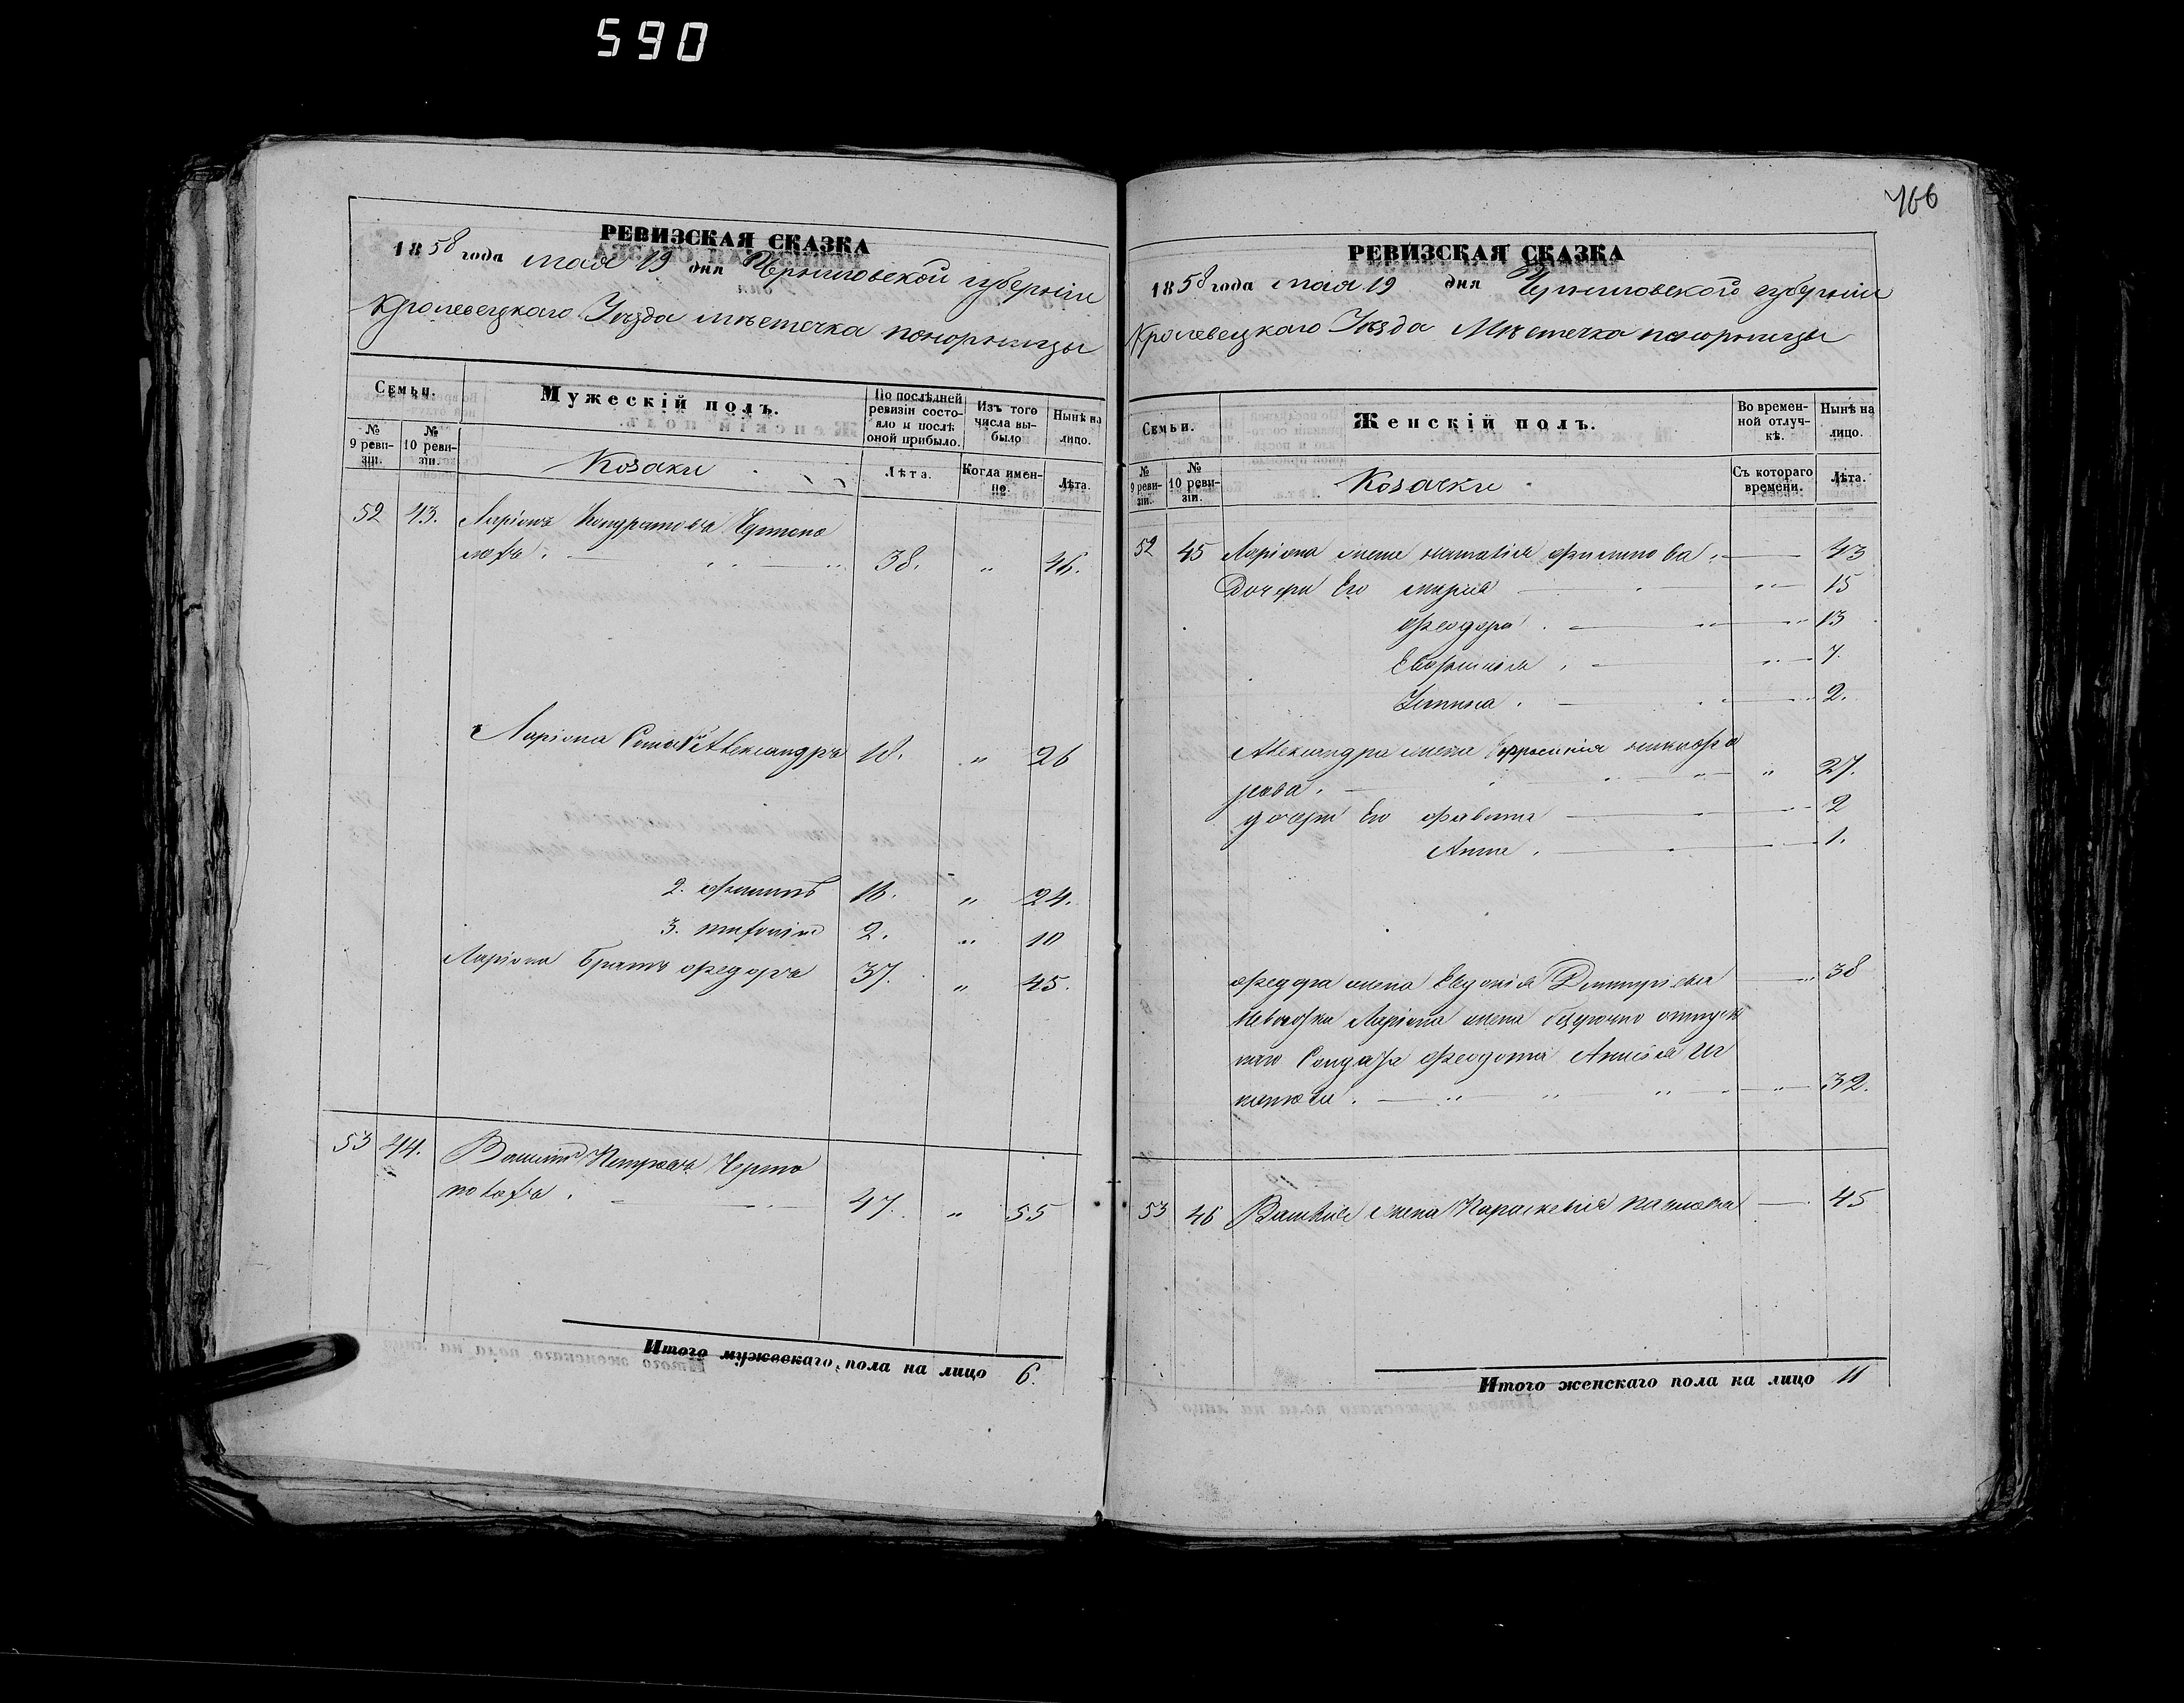 590
РЕВИЗСКАЯ СКАЗКА
1858 года мая 19 дня Черниговской губерніи
Кролевецкаго Уезда мѣстечка понорницы
Семьи.
Мужескій полъ.
По послѣдней ревизіи состояло и послѣ оной прибыло.
Изъ того числа выбыло
Нынѣ на лицо.
№ 9 ревизіи.
№ 10 ревизіи.
Козаки
Лѣта.
Когда именно.
Лѣта.
52 43. Ларіонъ Кондратовъ
38. " 46.
Ларіона Сынъ Александръ 18. " 26
2. филипъ 16. " 24.
3. 2. " 10
Ларіона братъ федоръ 37. " 45.
53 44. Василій Петровъ Черто
47. " 55
Итого мужескаго пола на лицо 6.
166
РЕВИЗСКАЯ СКАЗКА
1858 года мая 19 дня Черниговской губерніи
Кролевецкаго Уезда Мѣстечка понорницы
Семьи.
Женскій полъ.
Во временной отлучкѣ.
Нынѣ на лицо.
№ 9 ревизіи.
№ 10 ревизіи.
Козачки
Съ котораго времени.
Лѣта.
52 45 Ларіона жена наталія филипова 43
Дочери его марія " 15
феодора " 13
Евфросинія " 7.
Устинья " 2.
Александра жена Ефросинія никифо
рова. " 27.
дочери Его 2
Анна. 1.
федора жена Евдокія Димитріева 38
Невестка Ларіона жена безсрочно отпуск
наго Солдата феодота Анисія
32.
53 46 Василія жена Параскевія павлова 45
Итого женскаго пола на лицо 11